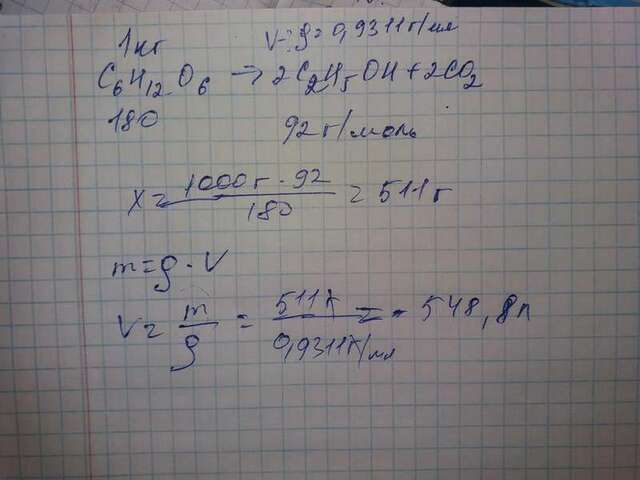 1 кг V-? ρ=0,9311г/мл
C6H12O6 → 2C2H5OH + 2CO2
180 92 г/моль
X = 1000г · 92 / 180 = 511г
m = ρ · V
V = m / ρ = 511г / 0,9311г/мл = 548,8л